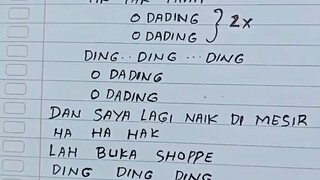 O DADING } 2x
O DADING
DING.. DING ... DING
O DADING
O DADING
DAN SAYA LAGI NAIK DI MESIR
HA HA HAK
LAH BUKA SHOPPE
DING DING DING